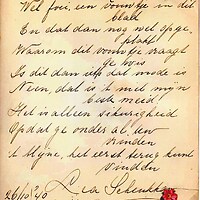 Wel foei, een vouwtje in dit
blad
En dat dan nog wel op ge-
plakt
Waarom dit vouwtje vraagt
ge
Is dit dan iets dat mode is
Neen, dat is 't met mijn
meid
Het is alleen zekerigheid
Opdat ge onder al uw
vrinden
't Mijne, het eerst terug kunt
vinden
26/10 '40